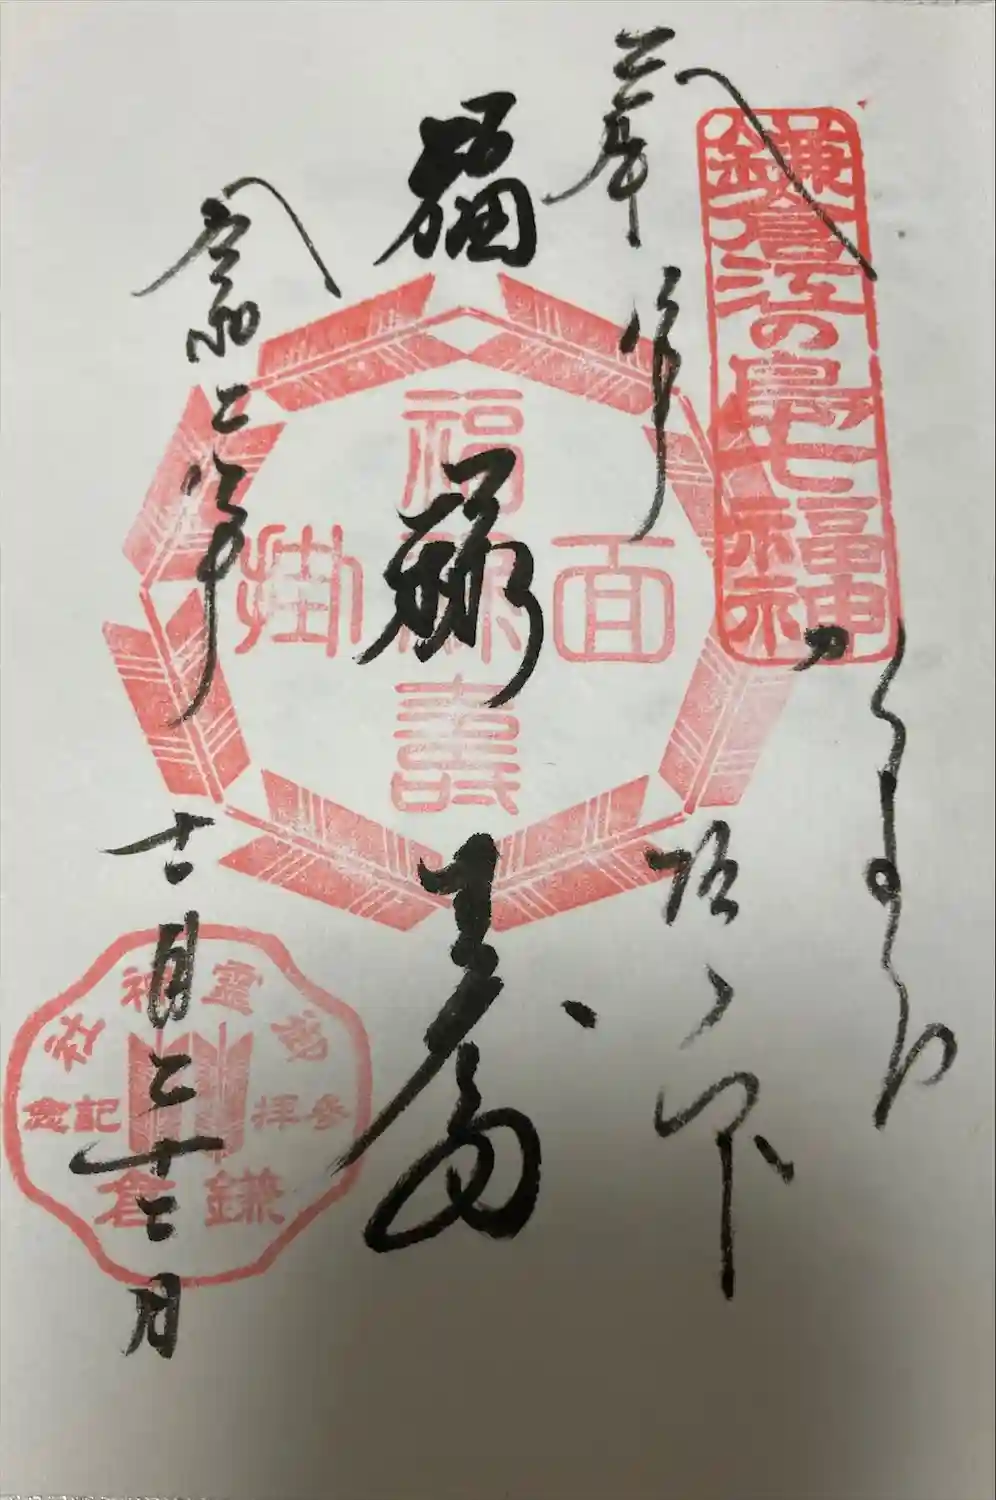 鎌倉江の島七福神
坂ノ下
福禄寿
福禄寿
面掛
令和二年
十一月二十二日
御霊神社
参拝記念
鎌倉